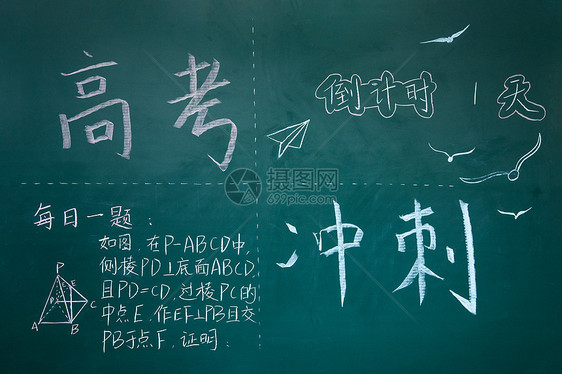 高考
倒计时 1 天
每日一题：
如图，在P-ABCD中，
侧棱PD⊥底面ABCD，
且PD=CD，过棱PC的
中点E，作EF⊥PB且交
PB于点F，证明：
P
E
D
C
A
B
冲刺
摄图网
699pic.com